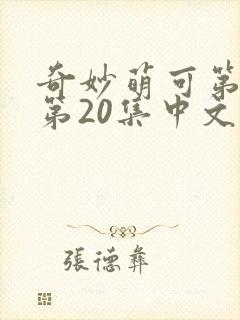 奇妙萌可第
第20集中文
張德彝